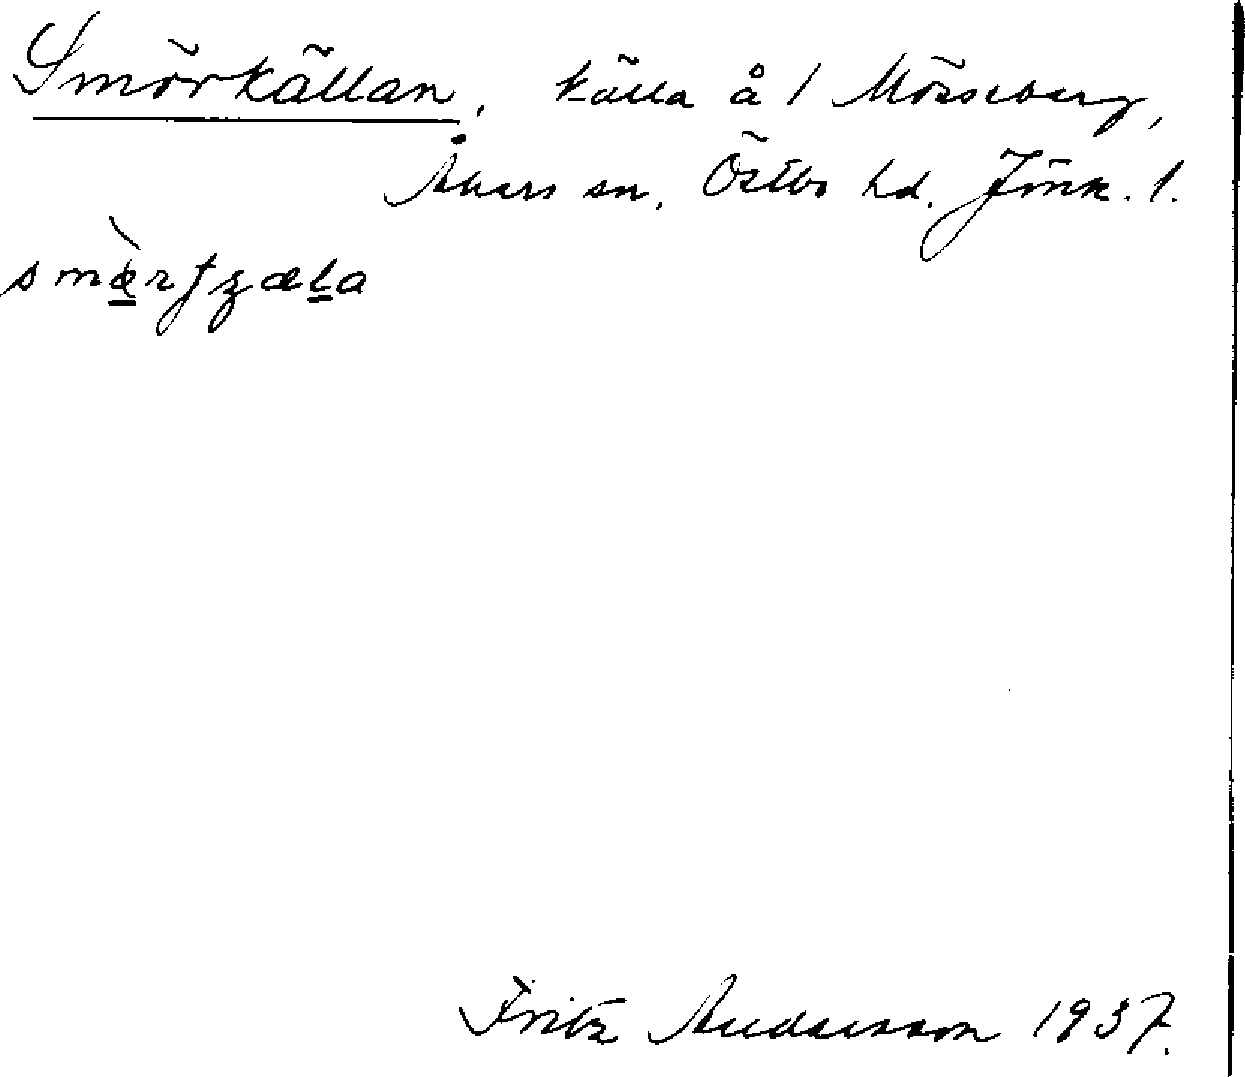 Smörkällan, källa å 1 Mösseberg,
Åkers sn, Östbo hd. Jönk. l.
Fritz Andersson 1937.